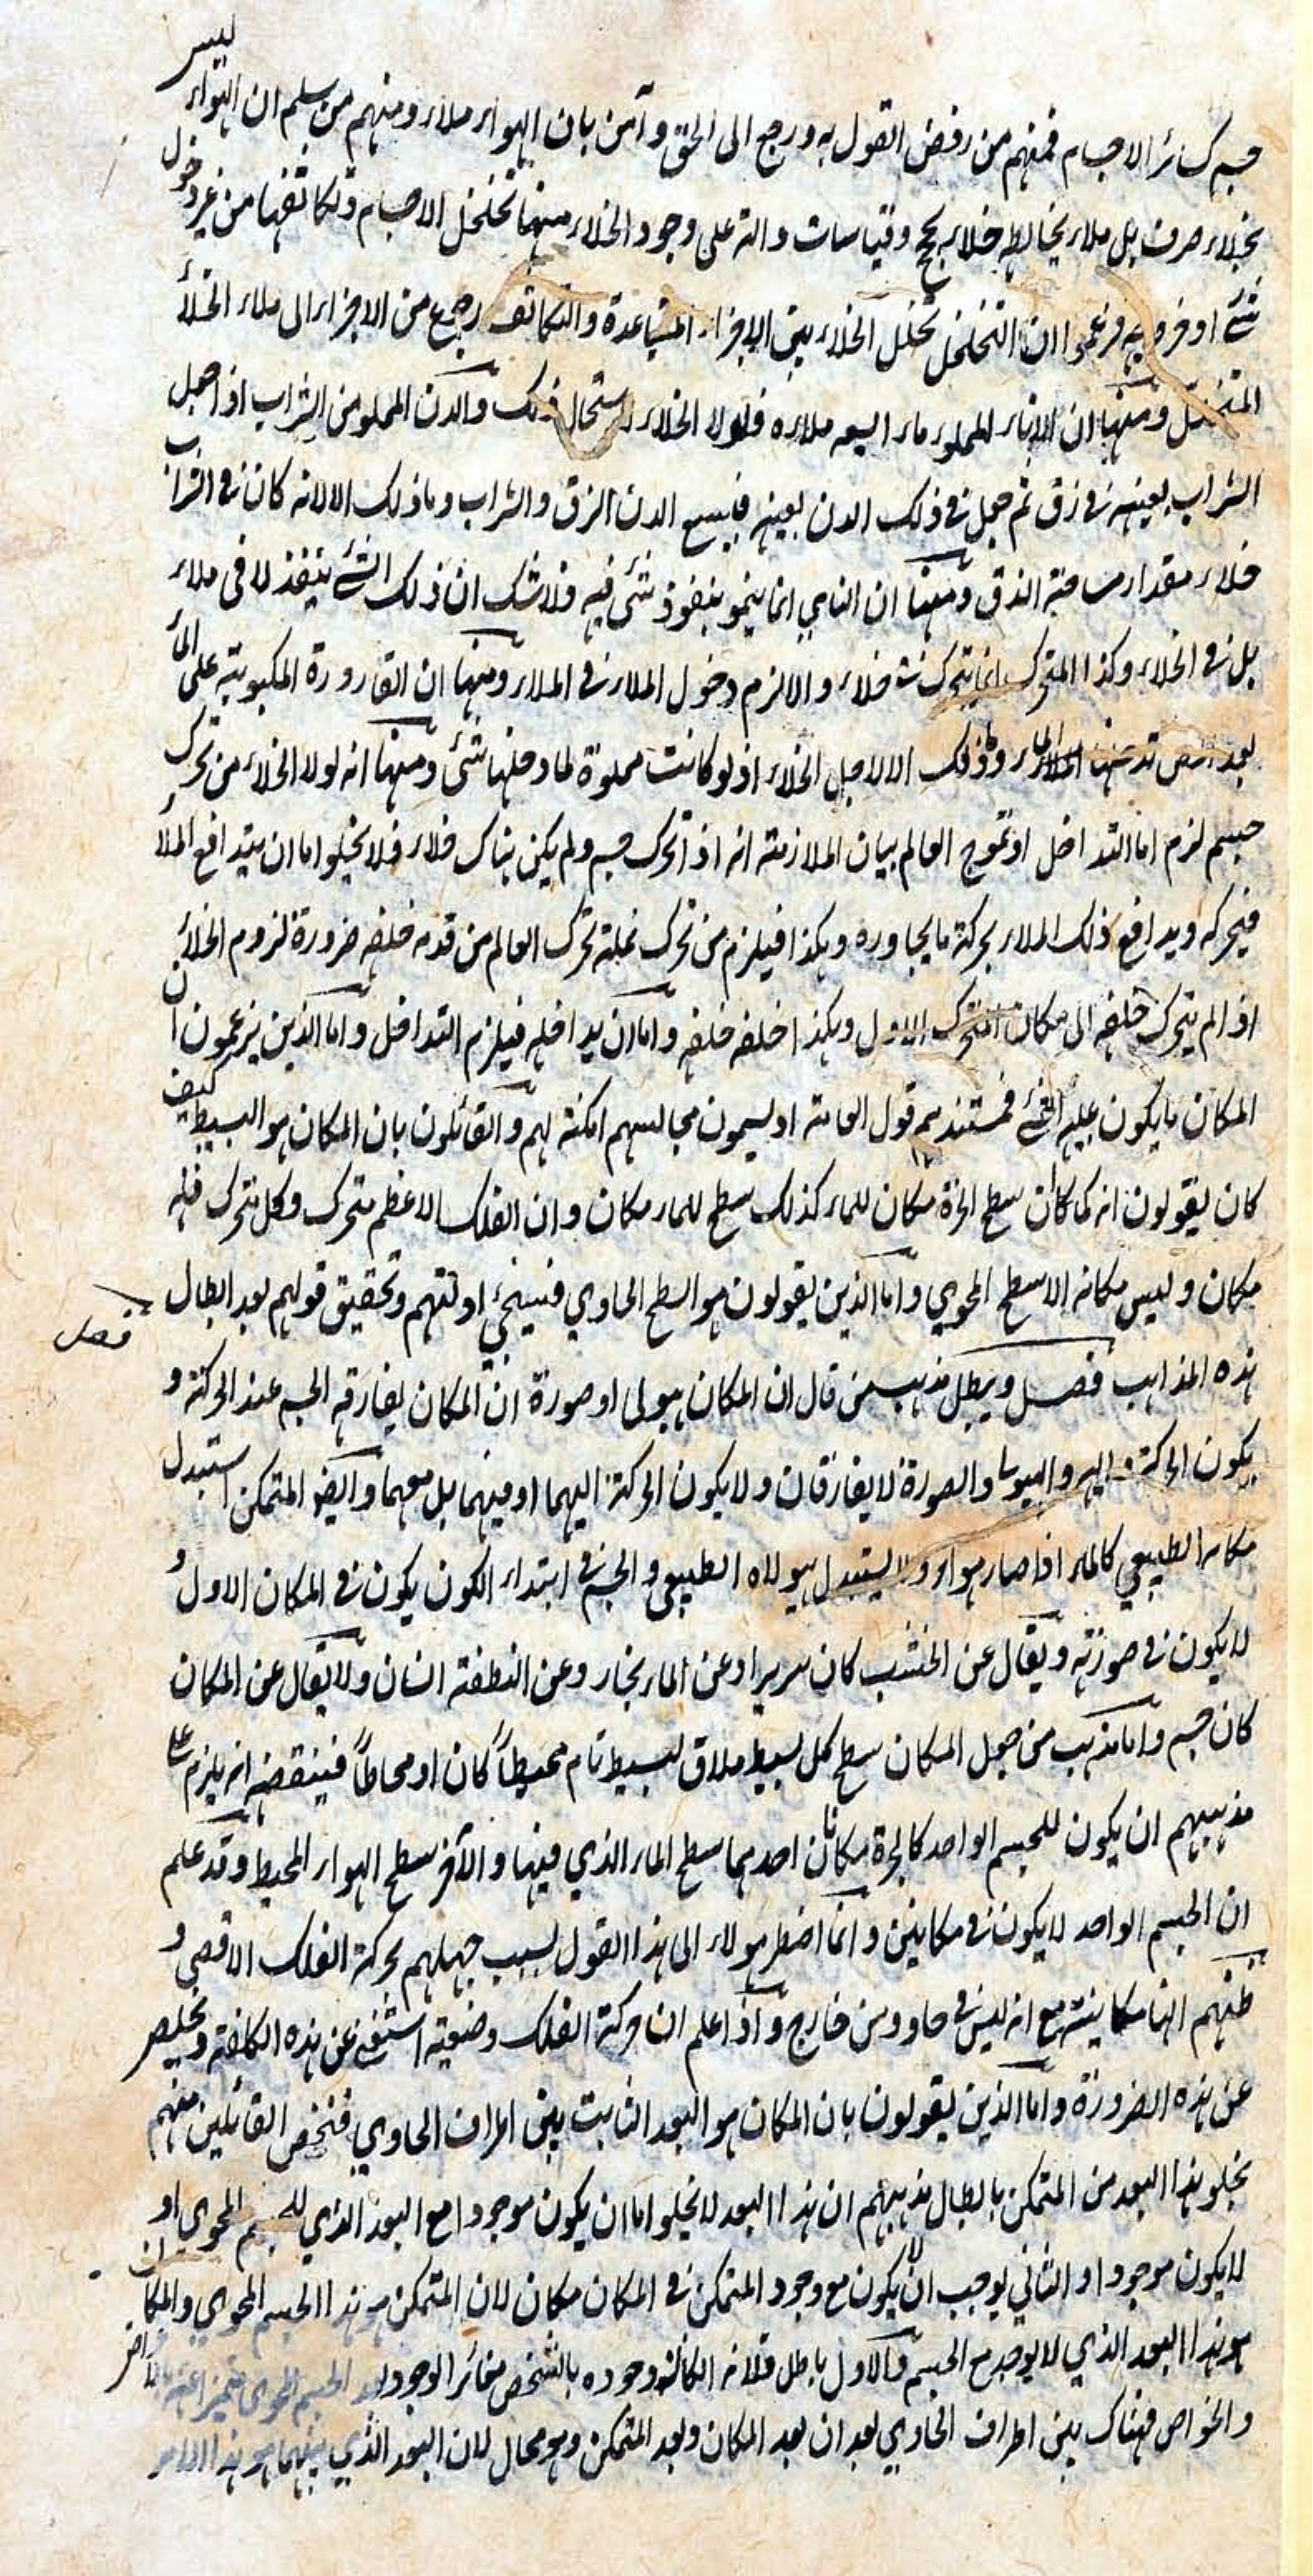 جسم كسائر الاجسام فمنهم من رفض القول به ورجع الى الحق وآمن بان الهواء ملاء ومنهم من سلم ان الهواء ليس
بخلاء صرف بل ملاء يخالطه خلاء بحجج وقياسات دالة على وجود الخلاء منها تخلخل الاجسام وتكاثفها من غير دخول
شئ او خروجه فزعموا ان التخلخل تخلل الخلاء بين الاجزاء المتباعدة والتكاثف رجوع من الاجزاء الى ملاء الخلأ
المتخلل ومنها ان الاناء المملو رمادا يسع ملاءه فلولا الخلاء لاستحال ذلك والدن المملو من الشراب اذا جعل
الشراب بعينه في زق ثم جعل في ذلك الدن بعينه فيسع الدن الزق والشراب وما ذلك الا لانه كان في الشراب
خلاء مقدار مساحة الزق ومنها ان النامي انما ينمو بنفوذ شئ فيه فلا شك ان ذلك الشئ ينفذ لا في ملاء
بل في الخلاء وكذا المتحرك انما يتحرك في خلاء والا لزم دخول الملاء في الملاء ومنها ان القارورة المكبوبة على المأ
بعد مص تدخلها الماء وما ذلك الا لاجل الخلاء اذ لو كانت مملوة لما دخلها شئ ومنها انه لولا الخلاء من تحرك
جسم لزم اما التداخل او تموج العالم بيان الملازمة انه اذا تحرك جسم ولم يكن هناك خلاء فلا يخلو اما ان يتدافع الملأ
فيحركه ويدافع ذلك الملاء بحركة ما يجاوره وهكذا فيلزم من تحرك نملة تحرك العالم من قدمه خلفه ضرورة لزوم الخلأ
اذا لم يتحرك خلفه الى مكان المتحرك الاول وهكذا خلفه خلفه واما ان يداخله فيلزم التداخل واما الذين يزعمون ان
المكان ما يكون عليه الشئ فمستندهم قول العامة اذ يسمون مجالسهم امكنة لهم والقائلون بان المكان هو البسيط كيف
كان يقولون انه كما كان سطح الجرة مكان للماء كذلك سطح للماء مكان وان الفلك الاعظم متحرك وكل متحرك فله
مكان وليس مكانه الا سطح المحوي واما الذين يقولون هو السطح الحاوي فسيجئ ادلتهم وتحقيق قولهم بعد ابطال
فصل
هذه المذاهب فصل ويبطل مذهب من قال ان المكان هيولى او صورة ان المكان يفارقه الجسم عند الحركة و
يكون الحركة اليه والهيولى والصورة لا يفارقان ولا يكون الحركة اليهما او فيهما بل معهما وايضا المتمكن استبدل
مكانه الطبيعي كالماء اذا صار هواء ولا يستبدل هيولاه الطبيعي والجسم في ابتداء الكون يكون في المكان الاول و
لا يكون في صورته ويقال عن الخشب كان سريرا وعن الماء بخار وعن النطفة انسان ولا يقال عن المكان
كان جسم واما مذهب من جعل المكان سطح كل بسيط ملاق لبسيط تام محيطا كان او محاطا فينقضه انه يلزم على
مذهبهم ان يكون للجسم الواحد كالجرة مكانان احدهما سطح الماء الذي فيها والآخر سطح الهواء المحيط وقد علم
ان الجسم الواحد لا يكون في مكانين وانما اضطر هولاء الى هذا القول بسبب جهلهم بحركة الفلك الاقصى و
ظنهم انها مكانية مع انه ليس في حاو ومن خارج واذا علم ان حركة الفلك وضعية استغنى عن هذه الكلفة وتخلص
عن هذه الضرورة واما الذين يقولون بان المكان هو البعد الثابت بين اطراف الحاوي فنخص القائلين منهم
بخلو هذا البعد من المتمكن بابطال مذهبهم ان هذا البعد لا يخلو اما ان يكون موجودا مع البعد الذي للجسم المحوي او
لا يكون موجودا والثاني يوجب ان لا يكون مع وجود المتمكن في المكان مكان لان المتمكن هو هذا الجسم المحوي والمكان
هو هذا البعد الذي لا يوجد مع الجسم والاول باطل فلانه الكان وجوده بالشخص مغائر الوجود بعد الجسم المحوى متميزا عنه
والخواص فهناك بين اطراف الحاوي بعدان بعد المكان وبعد المتمكن وهو محال لان البعد الذي بينهما هو هذا